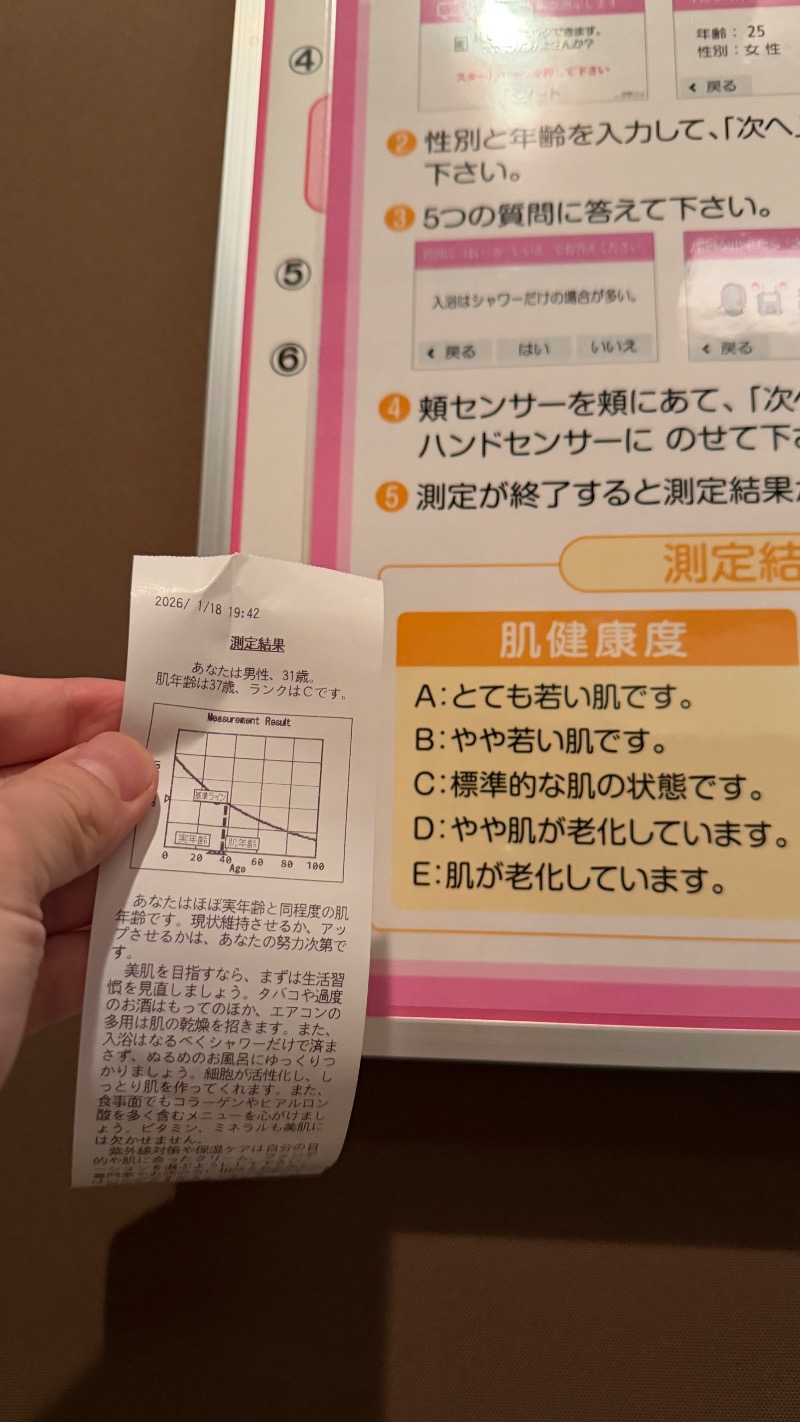 ④
⑤
⑥
年齢：25
性別：女性
戻る
❷ 性別と年齢を入力して、「次へ
下さい。
❸ 5つの質問に答えて下さい。
入浴はシャワーだけの場合が多い。
戻る はい いいえ
戻る
❹ 頬センサーを頬にあて、「次へ
ハンドセンサーに のせて下さ
❺ 測定が終了すると測定結果が
測定結
肌健康度
A：とても若い肌です。
B：やや若い肌です。
C：標準的な肌の状態です。
D：やや肌が老化しています。
E：肌が老化しています。
2026/ 1/18 19:42
測定結果
あなたは男性、31歳。
肌年齢は37歳、ランクはCです。
Measurement Result
基準ライン
実年齢 肌年齢
0 20 40 60 80 100
Age
あなたはほぼ実年齢と同程度の肌
年齢です。現状維持させるか、アッ
プさせるかは、あなたの努力次第で
す。
美肌を目指すなら、まずは生活習
慣を見直しましょう。タバコや過度
のお酒はもってのほか、エアコンの
多用は肌の乾燥を招きます。また、
入浴はなるべくシャワーだけで済ま
さず、ぬるめのお風呂にゆっくりつ
かりましょう。細胞が活性化し、し
っとり肌を作ってくれます。また、
食事面でもコラーゲンやヒアルロン
酸を多く含むメニューを心がけまし
ょう。ビタミン、ミネラルも美肌に
は欠かせません。
紫外線対策や保湿ケアは自分の目
的や肌に合ったクリーム、